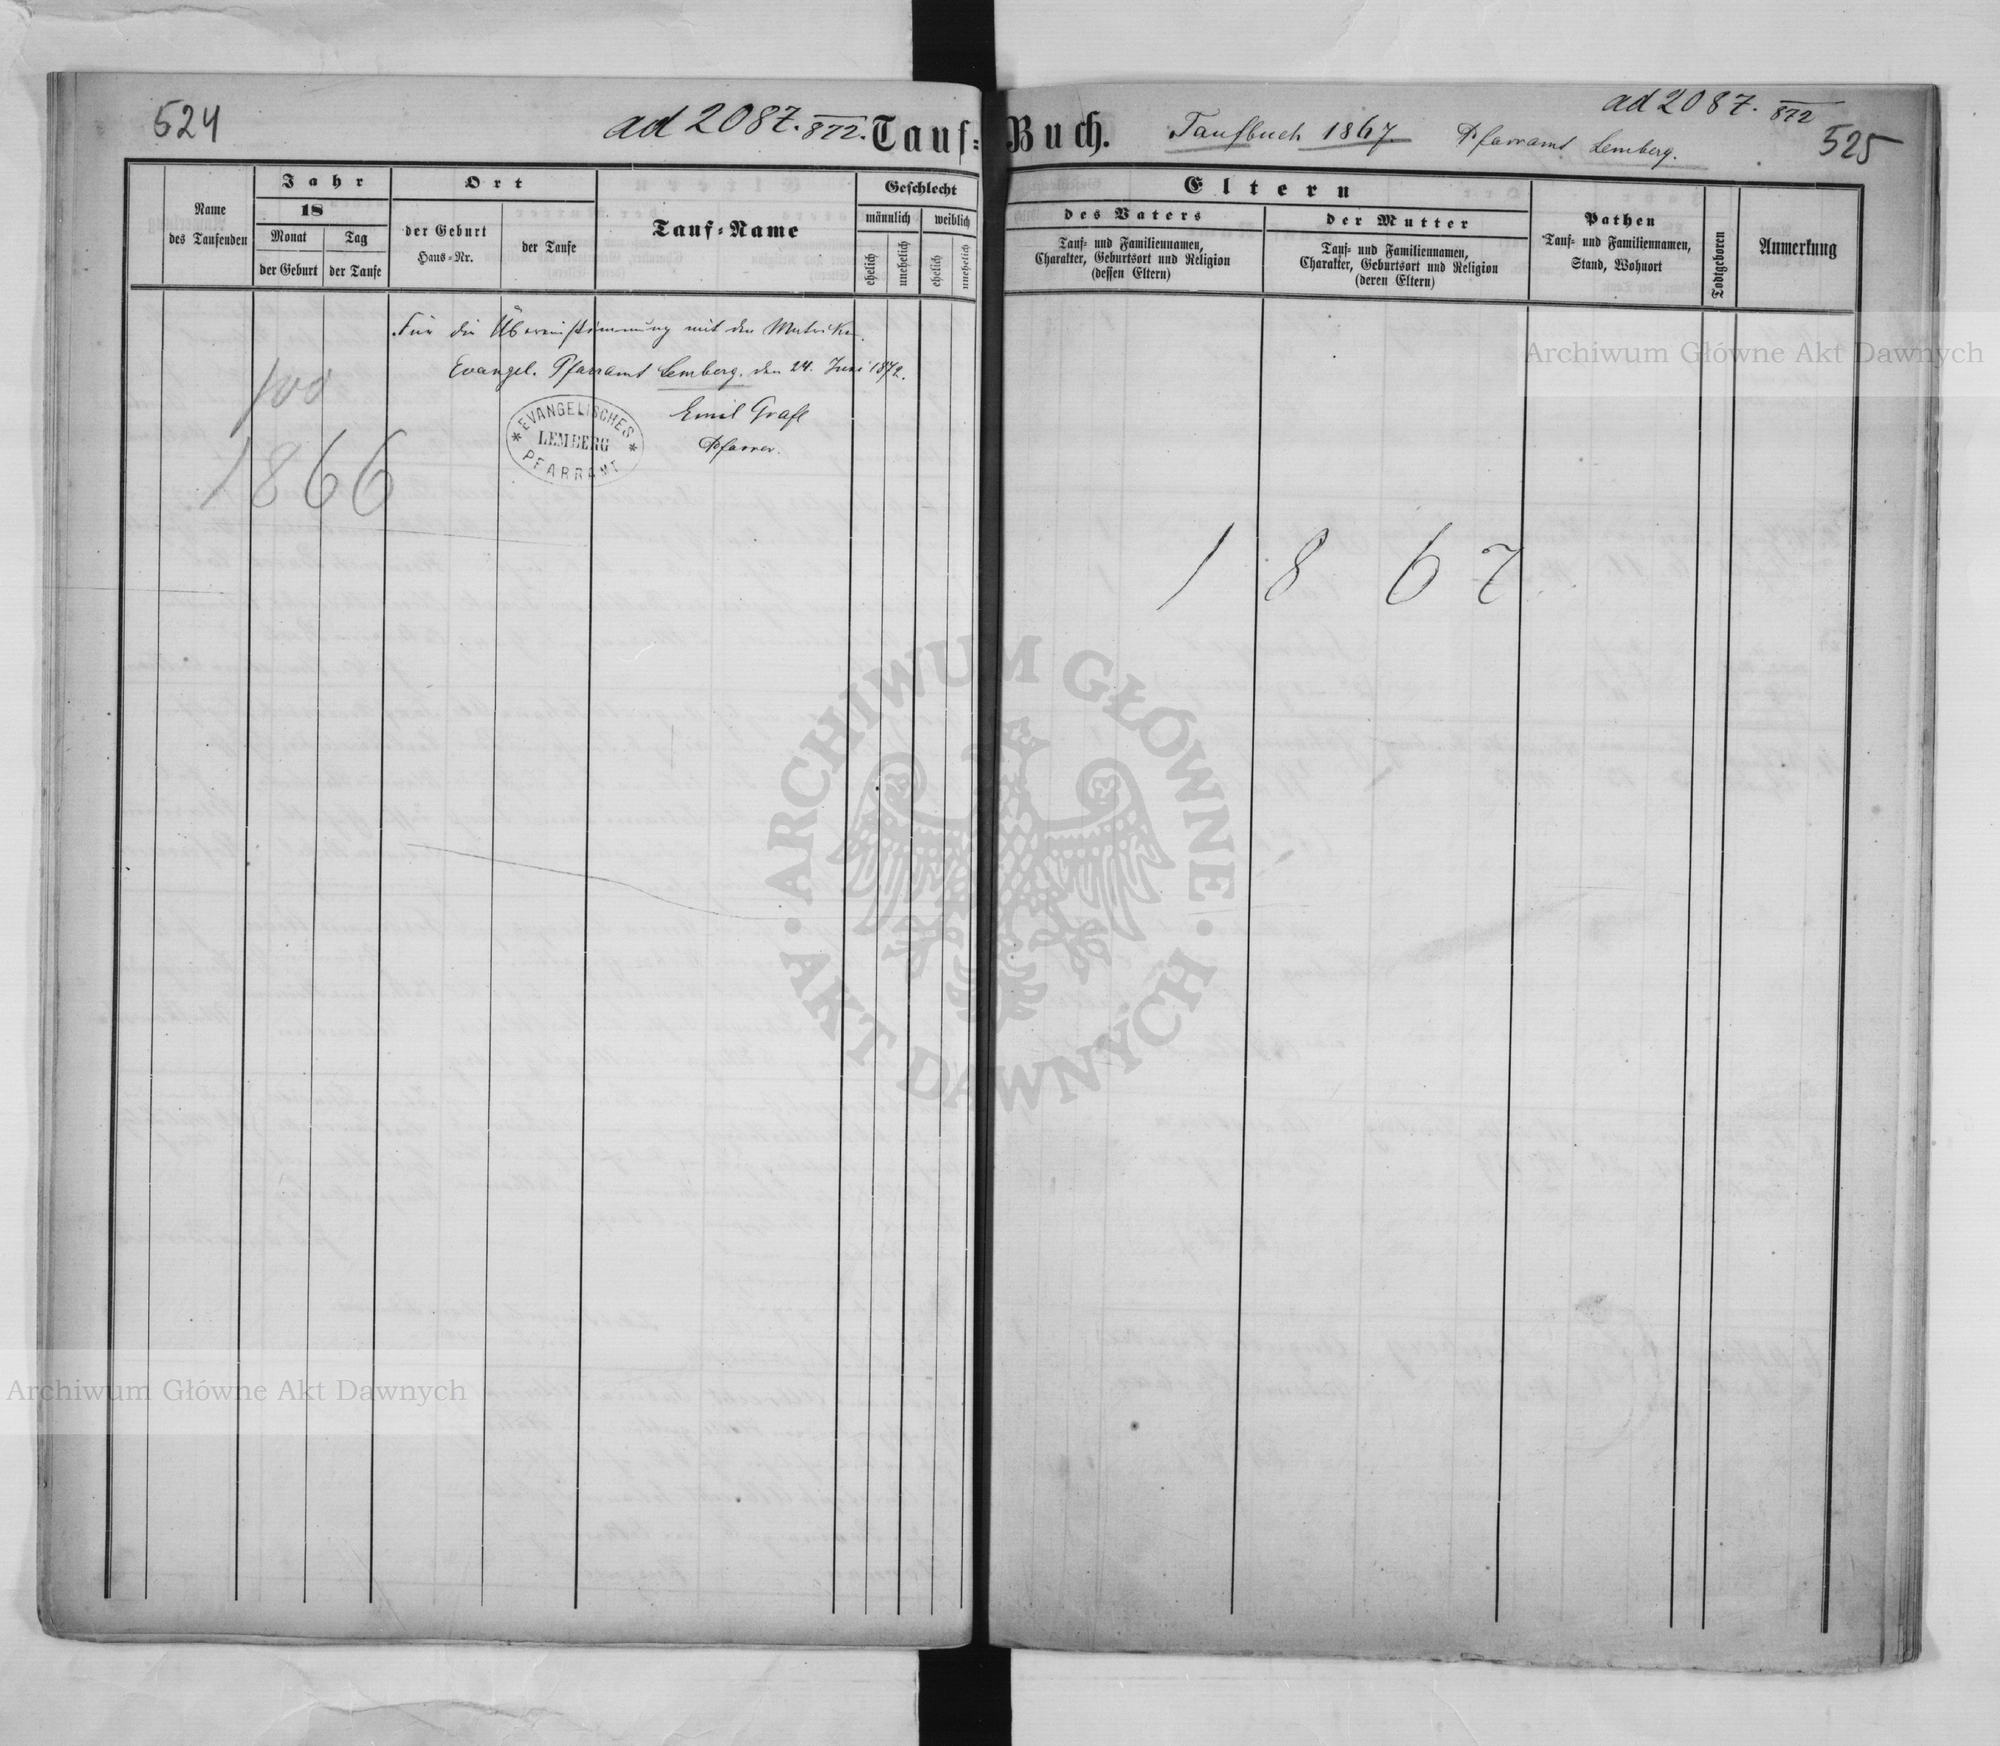 524
ad 2087. 872.
Tauf-Buch.
Taufbuch 1867.
Pfarramt Lemberg.
ad 2087. 872
525
Name
des Taufenden
Jahr
18
Monat
Tag
der Geburt
der Taufe
Ort
der Geburt
Haus-Nr.
der Taufe
Tauf-Name
Geschlecht
männlich
weiblich
ehelich
unehelich
ehelich
unehelich
Eltern
des Vaters
Tauf- und Familiennamen,
Charakter, Geburtsort und Religion
(dessen Eltern)
der Mutter
Tauf- und Familiennamen,
Charakter, Geburtsort und Religion
(deren Eltern)
Pathen
Tauf- und Familiennamen,
Stand, Wohnort
Todtgeboren
Anmerkung
Für die Übereinstimmung mit den Matriken.
Evangel. Pfarramt Lemberg, den 24. Juni 1872.
Emil Grafl
Pfarrer.
EVANGELISCHES
LEMBERG
PFARRAMT
1866
1867
Archiwum Główne Akt Dawnych
ARCHIWUM GŁÓWNE
AKT DAWNYCH
Archiwum Główne Akt Dawnych